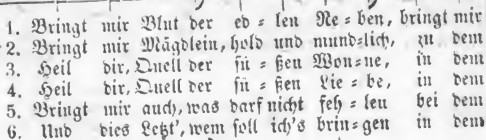 1. Bringt mir Blut der ed = len Re = ben, bringt mir
2. Bringt mir Mägdlein, hold und mund=lich, zu dem
3. Heil dir, Quell der sü = ßen Won=ne, in dem
4. Heil dir, Quell der sü = ßen Lie = be, in dem
5. Bringt mir auch, was darf nicht feh = len bei dem
6. Und dies Letzt', wem soll ich's brin=gen in dem